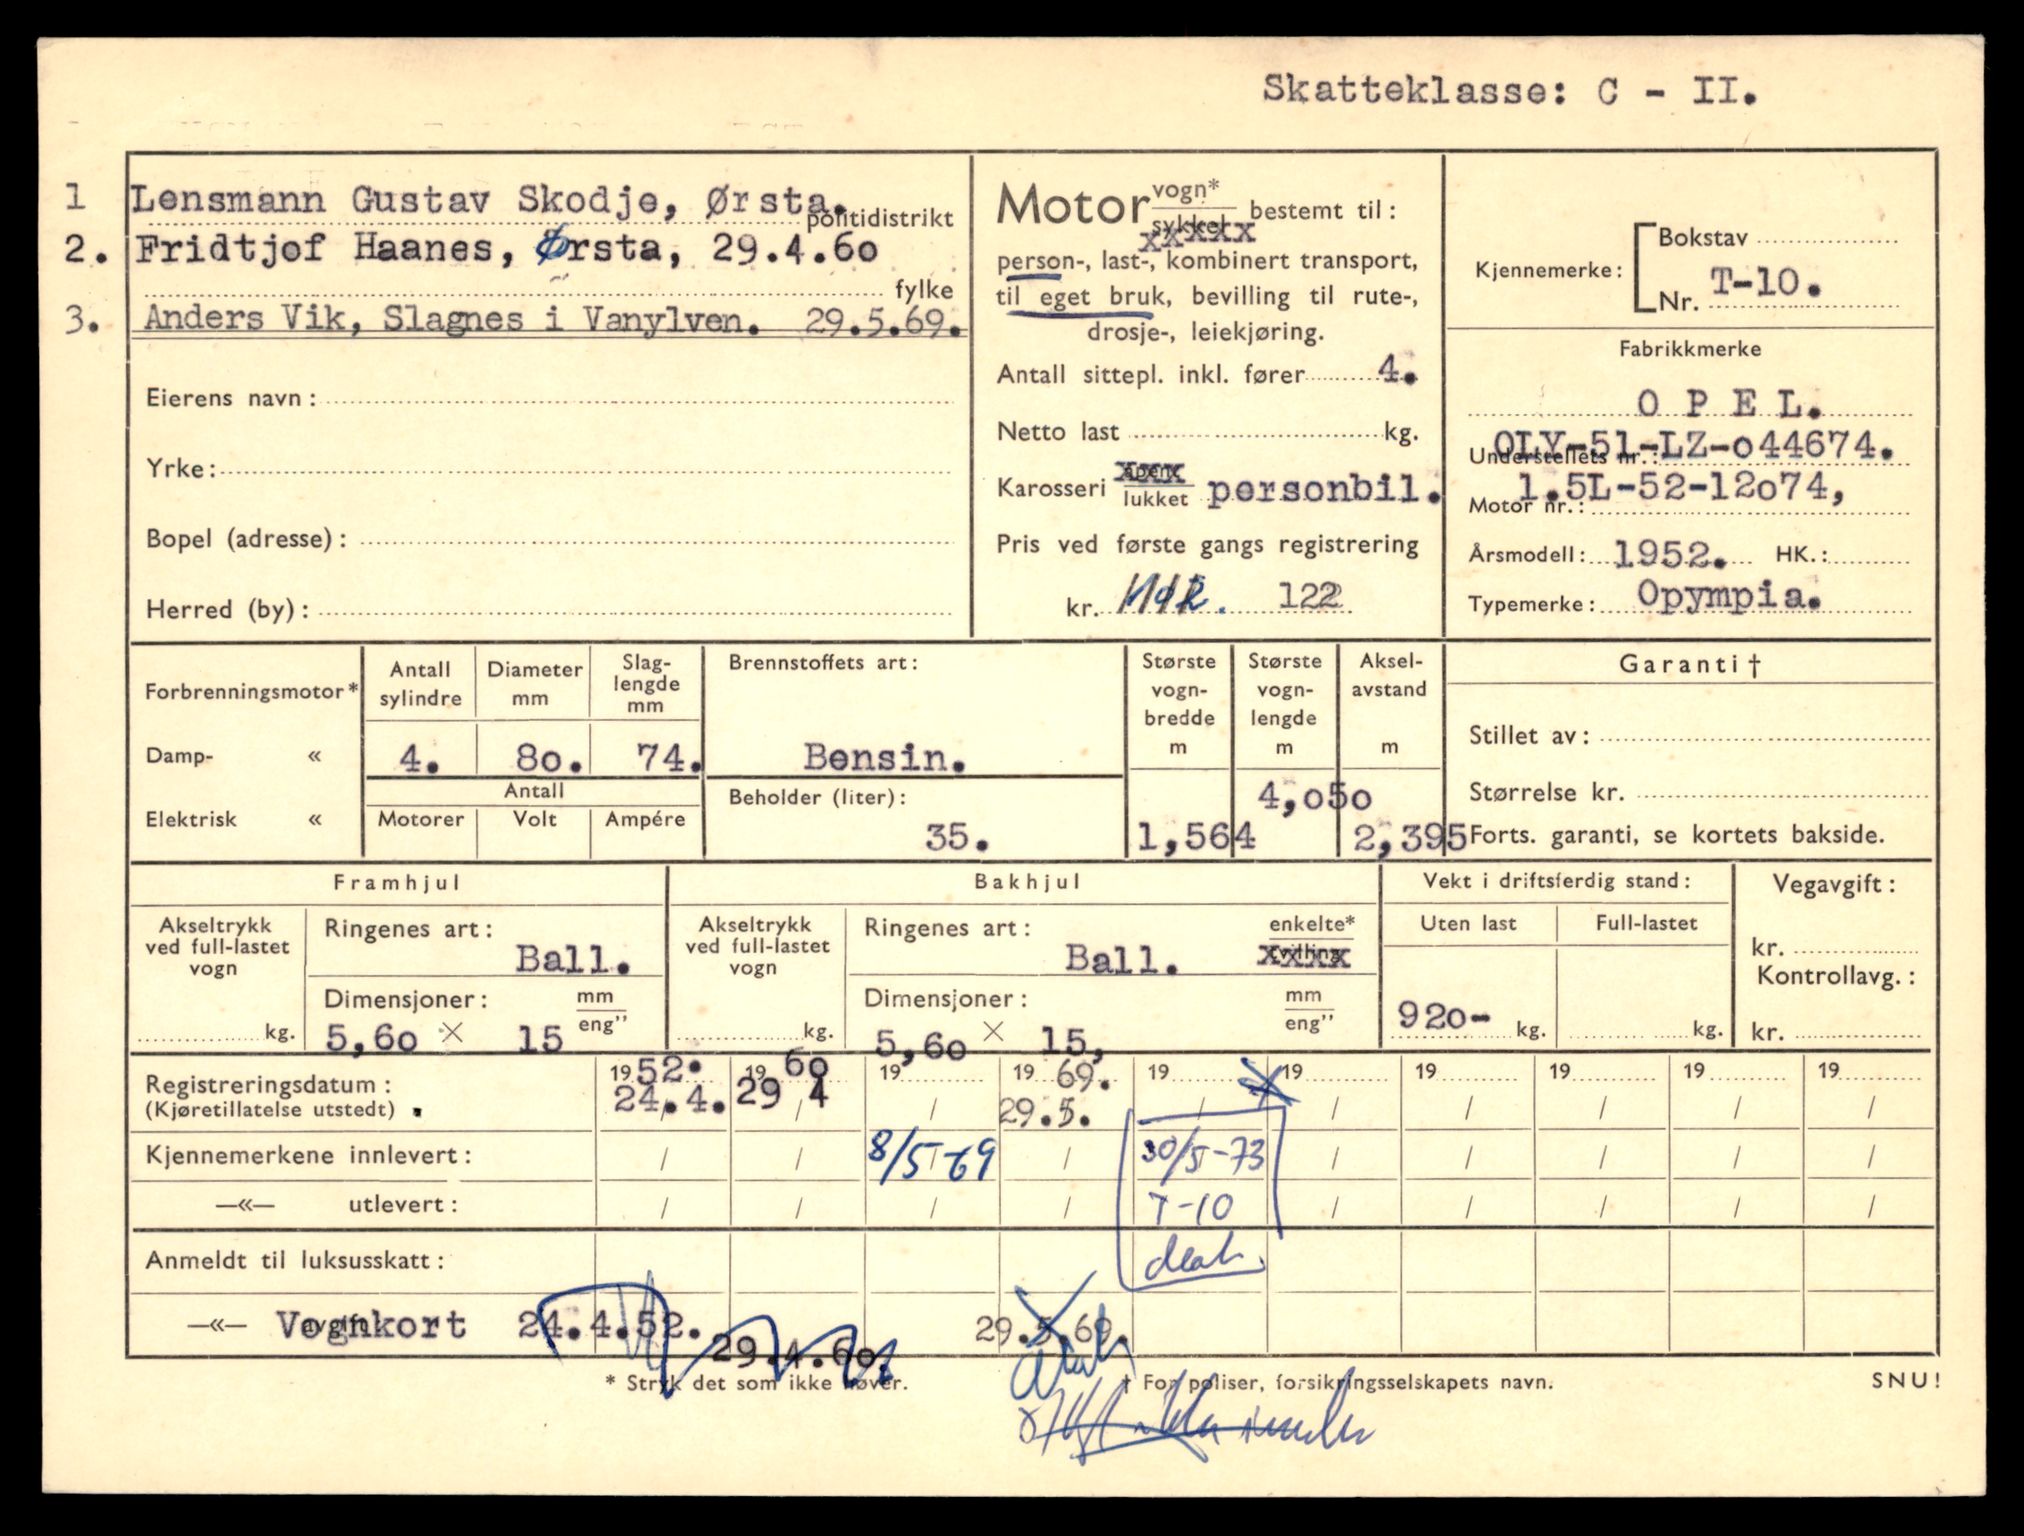 Skatteklasse: C - II.
1 Lensmann Gustav Skodje, Ørsta.
politidistrikt
2. Fridtjof Haanes, Ørsta, 29.4.6o
fylke
3. Anders Vik, Slagnes i Vanylven. 29.5.69.
Eierens navn:
Yrke:
Bopel (adresse):
Herred (by):
Motor vogn* sykkel bestemt til:
person-, last-, kombinert transport,
til eget bruk, bevilling til rute-,
drosje-, leiekjøring.
Antall sittepl. inkl. fører 4.
Netto last kg.
Karosseri åpen lukket personbil.
Pris ved første gangs registrering
kr. 122
Kjennemerke: Bokstav
Nr. T-10.
Fabrikkmerke
O P E L.
Understellets nr.: OLY-51-LZ-o44674.
Motor nr.: 1.5L-52-12o74,
Årsmodell: 1952. HK.:
Typemerke: Opympia.
Forbrenningsmotor*
Damp- «
Elektrisk «
Antall sylindre
4.
Diameter mm
8o.
Slag-lengde mm
74.
Antall
Motorer Volt Ampére
Brennstoffets art:
Bensin.
Beholder (liter):
35.
Største vogn-bredde m
1,564
Største vogn-lengde m
4,o5o
Aksel-avstand m
2,395
Garanti †
Stillet av:
Størrelse kr.
Forts. garanti, se kortets bakside.
Framhjul
Akseltrykk ved full-lastet vogn
kg.
Ringenes art:
Ball.
Dimensjoner: mm eng”
5,6o × 15
Bakhjul
Akseltrykk ved full-lastet vogn
kg.
Ringenes art: enkelte* tvilling
Ball. xxxx
Dimensjoner: mm eng”
5,6o × 15,
Vekt i driftsferdig stand:
Uten last Full-lastet
92o- kg. kg.
Vegavgift:
kr.
Kontrollavg.:
kr.
Registreringsdatum: 1952. 19 6o 19 19 69. 19 19 19 19 19 19
(Kjøretillatelse utstedt) . 24.4. 29 / 4 / 29.5. / / / / / /
Kjennemerkene innlevert: / / 8/5-69 / 30/5-73 / / / / /
—«— utlevert: / / / / T-10 / / / / /
Anmeldt til luksusskatt:
—«— avgift Vognkort 24.4.52. 29.4.6o. 29.5.69.
* Stryk det som ikke høver. † For poliser, forsikringsselskapets navn. SNU!